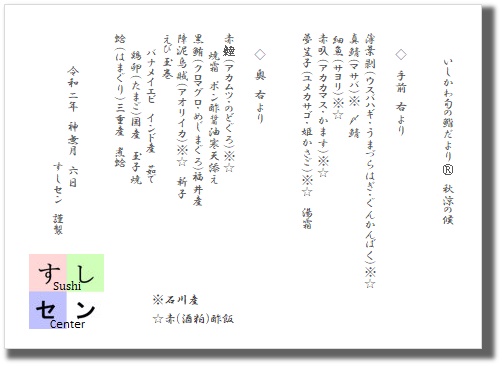 いしかわ旬の鮨だより® 秋涼の候
◇ 手前 右より
薄葉剥(ウスバハギ・うまづらはぎ・ぐんかんばく)※☆
真鯖(マサバ)※ 〆鯖
細魚(サヨリ)※☆
赤叺(アカカマス・かます)※☆
夢笠子(ユメカサゴ・姐かさご)※☆ 湯霜
◇ 奥 右より
赤鯥(アカムツ・のどぐろ)※☆
焼霜 ポン酢醤油寒天添え
黒鮪(クロマグロ・めじまぐろ)福井産
障泥烏賊(アオリイカ)※☆ 新子
えび玉巻
バナメイエビ インド産 茹で
鶏卵(たまご)国産 玉子焼
蛤(はまぐり)三重産 煮蛤
令和二年 神無月 六日
すしセン 謹製
※石川産
☆赤(酒粕)酢飯
すし
Sushi
セン
Center